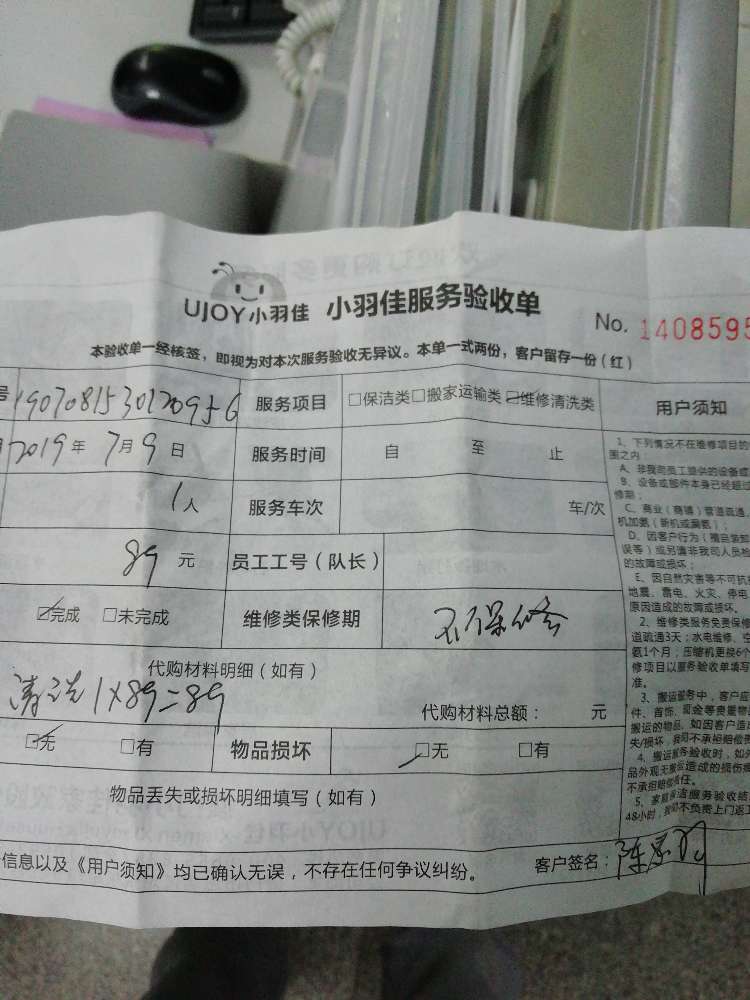 UJOY小羽佳 小羽佳服务验收单
No. 1408595
本验收单一经核签，即视为对本次服务验收无异议。本单一式两份，客户留存一份（红）
号 服务项目 □保洁类□搬家运输类☑维修清洗类 用户须知
2019年7月9日 服务时间 自 至 止
1人 服务车次 车/次
89元 员工工号（队长）
☑完成 □未完成 维修类保修期 不保修
代购材料明细（如有）
清洗1×89=89 代购材料总额： 元
☑无 □有 物品损坏 ☑无 □有
物品丢失或损坏明细填写（如有）
信息以及《用户须知》均已确认无误，不存在任何争议纠纷。 客户签名：
1、下列情况不在维修项目的
围之内：
A、非我司员工提供的设备或
B、设备或部件本身已经超过
修期；
C、商业（商铺）管道疏通、
机加氨（新机或漏氨）；
D、因客户行为（擅自装卸
误等）或另请非我司人员检
的故障或损坏；
E、因自然灾害等不可抗
地震、雷电、火灾、停电
原因造成的故障或损坏。
2、维修类服务免费保修
道疏通3天；水电维修、空
氨1个月；压缩机更换6个
修项目以服务验收单填写
准。
3、搬运服务中，客户应
件、首饰、现金等贵重物
搬运的物品，如因客户造
失/损坏，我司不承担赔偿责
4、搬运服务验收时，如外
品外观无搬运造成的损伤
不承担赔偿责任。
5、家庭保洁服务验收结
48小时，我司不负责上门返工